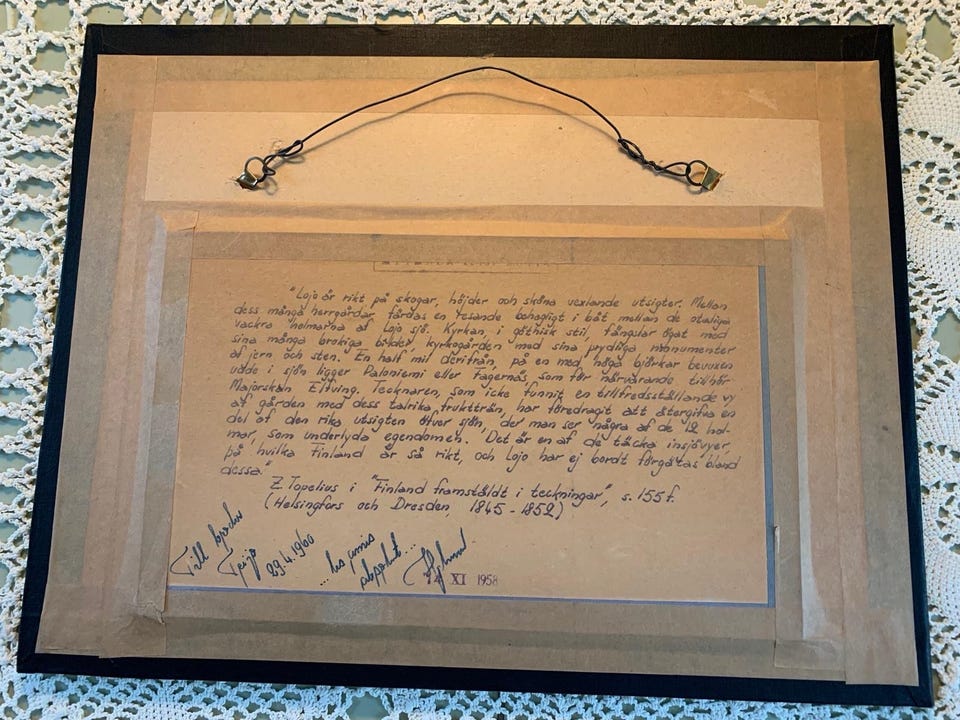 "Lojo är rikt på skogar, höjder och sköna vexlande utsigter. Mellan
dess många herrgårdar färdas en resande behagligt i båt mellan de otaliga
vackra holmarna af Lojo sjö. Kyrkan, i göthisk stil, fängslar ögat med
sina många brokiga bilder, kyrkogården med sina prydliga monumenter
af jern och sten. En half mil derifrån, på en med höga björkar bevuxen
udde i sjön ligger Paloniemi eller Fagernäs, som för närvarande tillhör
Majorskan Elfving. Tecknaren, som icke funnit en tillfredsställande vy
af gården med dess talrika fruktträn, har föredragit att återgifva en
del af den rika utsigten öfver sjön, der man ser några af de 12 hol-
mar, som underlyda egendomen. Det är en af de täcka insjövyer,
på hvilka Finland är så rikt, och Lojo har ej bordt förgätas bland
dessa."
Z. Topelius i "Finland framstäldt i teckningar", s. 155 f.
(Helsingfors och Dresden, 1845-1852)
Till
29.4.1960
... les amis
XI 1958